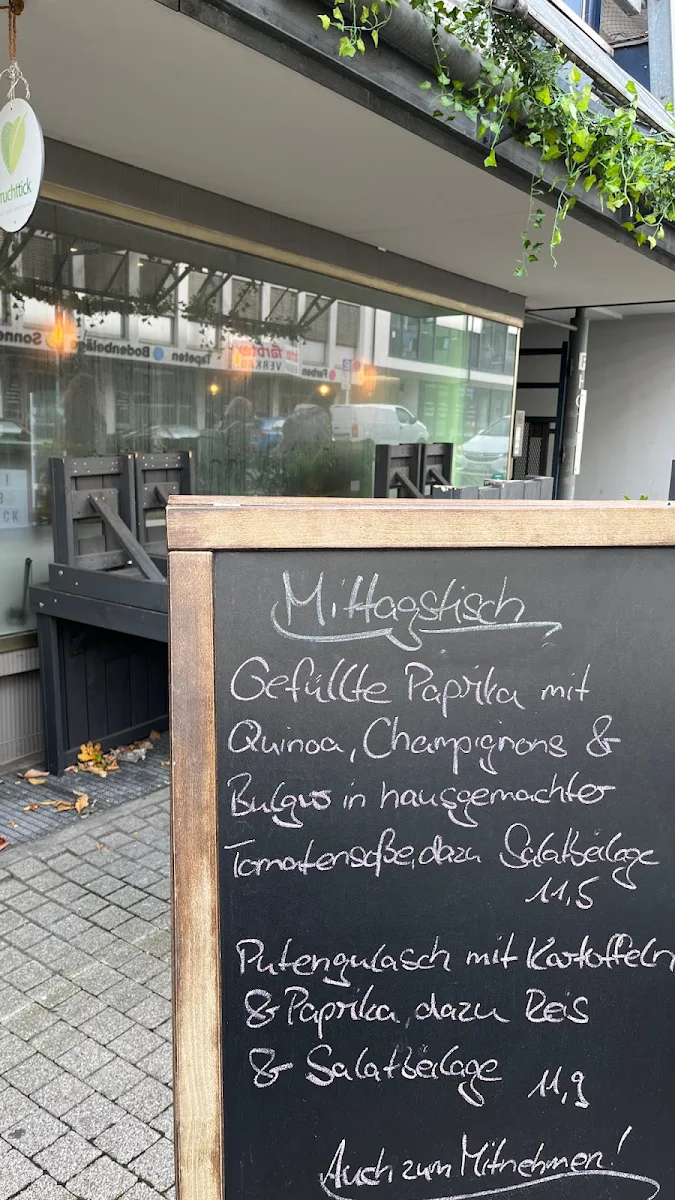 ruchttick
Tapeten Bodenbeläge Sonne
farbtex
VERKA
Farben
Mittagstisch
Gefüllte Paprika mit
Quinoa, Champignons &
Bulgur in hausgemachter
Tomatensoße, dazu Salatbeilage
11,5
Putengulasch mit Kartoffeln
& Paprika, dazu Reis
& Salatbeilage 11,9
Auch zum Mitnehmen!